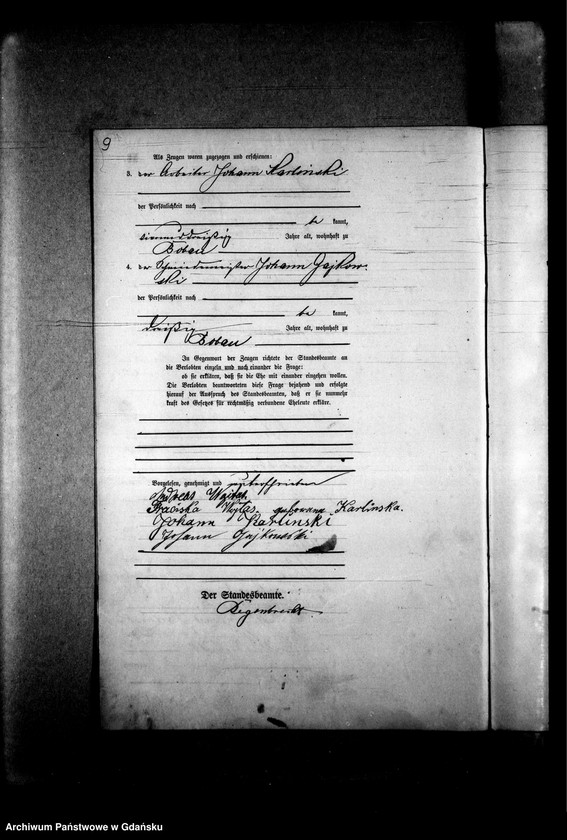 9
Als Zeugen waren zugezogen und erschienen:
3. der Arbeiter Johann Karlinski
der Persönlichkeit nach
be kannt,
Jahre alt, wohnhaft zu
Bobau
4. der Schmiedemeister Johann Jajkow-
ski
der Persönlichkeit nach
be kannt,
dreißig Jahre alt, wohnhaft zu
Bobau
In Gegenwart der Zeugen richtete der Standesbeamte an
die Verlobten einzeln und nach einander die Frage:
ob sie erklären, daß sie die Ehe mit einander eingehen wollen.
Die Verlobten beantworteten diese Frage bejahend und erfolgte
hierauf der Ausspruch des Standesbeamten, daß er sie nunmehr
kraft des Gesetzes für rechtmäßig verbundene Eheleute erkläre.
Vorgelesen, genehmigt und unterschrieben
Andreas Wojtas
Wojtas geborene Karlinska.
Johann Karlinski
Johann Jajkowski
Der Standesbeamte.
Regenbrecht
Archiwum Państwowe w Gdańsku